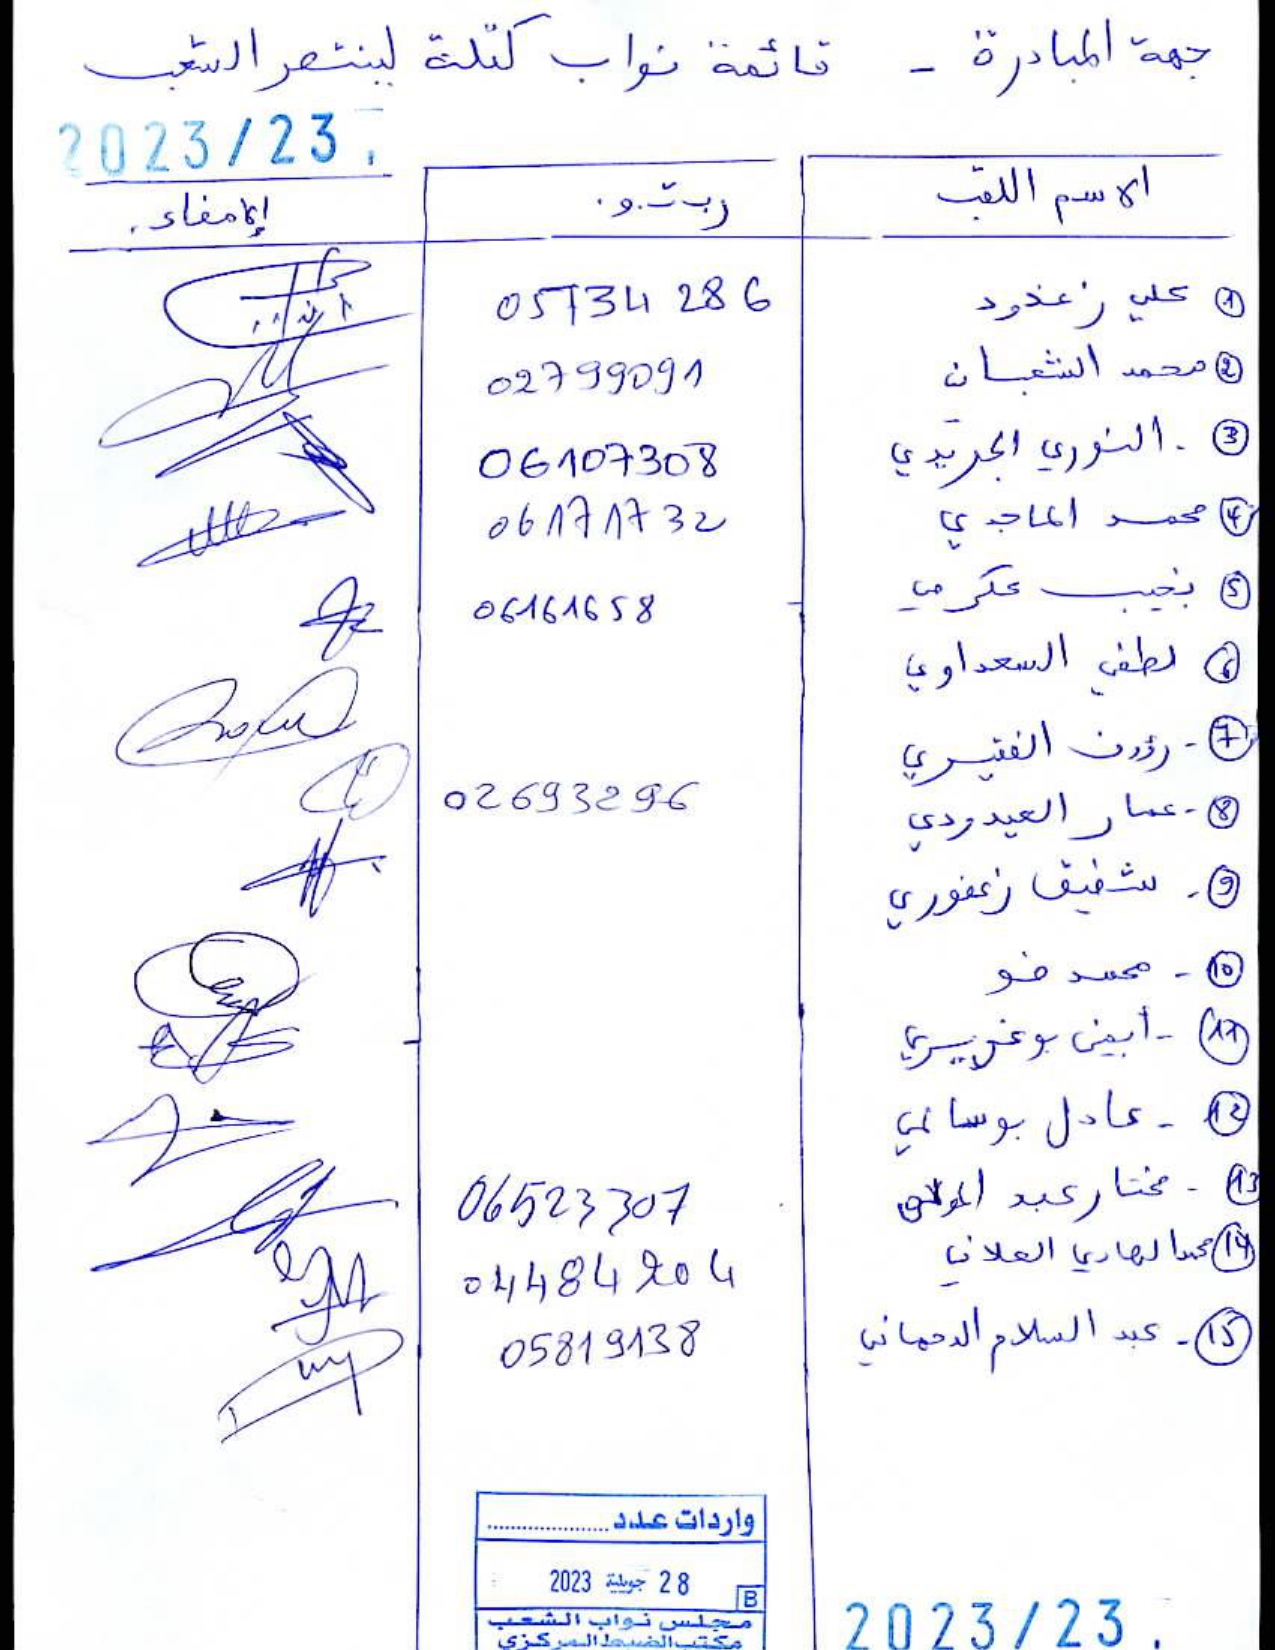 جهة المبادرة - قائمة نواب كتلة لينتصر الشعب
2023/23.
الاسم اللقب ر.ب.ت.و. الإمضاء.
① علي زغدود 05734286
② محمد الشعباني 02799091
③ - النوري الجريدي 06107308
④ محمد الماجدي 06171732
⑤ نجيب عكرمي 06161658
⑥ لطفي السعداوي
⑦ - رؤوف الفقيري
⑧ - عمار العيدودي 02693296
⑨ - شفيق زعفوري
⑩ - محمد ضو
⑪ - أيمن بوغديري
⑫ - عادل بوسالمي
⑬ - مختار عبد المولى 06523307
⑭ عبد الهادي العلاني 04484204
⑮ - عبد السلام الدحماني 05819138
واردات عدد ....................
28 جويلية 2023
B
مجلس نواب الشعب
مكتب الضبط المركزي
2023/23.